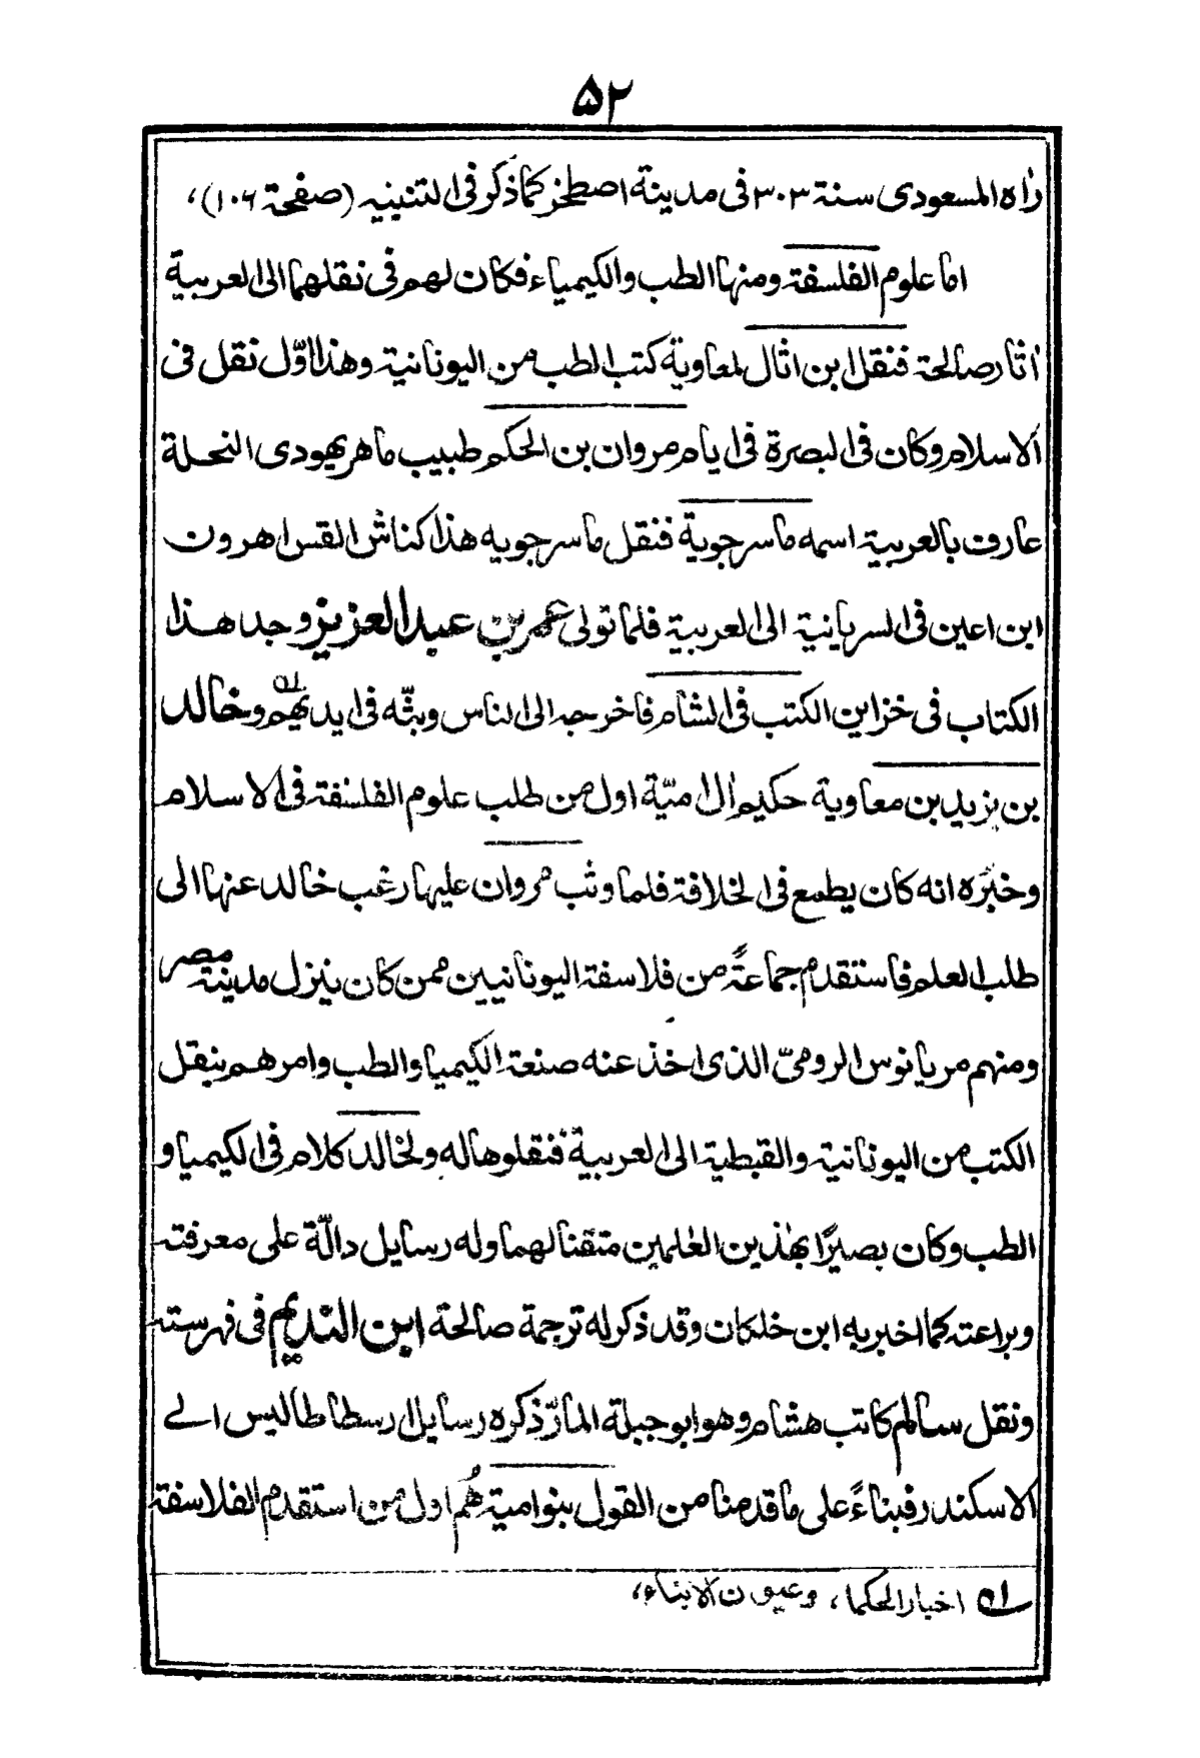 ۵۲
راٰه المسعودى سنة ۳۰۳ فى مدينة اصطخر كما ذكر فى التنبيه (صفحة ۱۰۶)،
اما علوم الفلسفة ومنها الطب والكيمياء فكان لهم فى نقلهما الى العربية
اٰثار صالحة فنقل ابن اثال لمعاوية كتب الطب من اليونانية وهذا اوّل نقل فى
الاسلام وكان فى البصرة فى ايام مروان بن الحكم طبيب ماهر يهودى النحلة
عارف بالعربية اسمه ماسرجوية فنقل ماسرجويه هذا كناش القس اهرون
ابن اعين فى السريانية الى العربية فلما تولى عمر بن عبد العزيز وجد هذا
الكتاب فى خزاين الكتب فى الشام فاخرجه الى الناس وبثّه فى ايديهم۱ وخالد
بن يزيد بن معاوية حكيم اٰل اميّة اول من طلب علوم الفلسفة فى الاسلام
وخبره انه كان يطمع فى الخلافة فلما وثب مروان عليها رغب خالد عنها الى
طلب العلم فاستقدم جماعةً من فلاسفة اليونانيين ممن كان ينزل مدينة مصر
ومنهم مريانوس الرومىّ الذى اخذ عنه صنعة الكيميا والطب وامرهم بنقل
الكتب من اليونانية والقبطية الى العربية فنقلوها له ولخالد كلام فى الكيميا و
الطب وكان بصيرًا بهٰذين العلمين متقنا لهما وله رسايل دالّة على معرفته
وبراعته كما اخبر به ابن خلكان وقد ذكر له ترجمة صالحة ابن النديم فى فهرسته
ونقل سالم كاتب هشام وهو ابو جبلة المارّ ذكره رسايل ارسطاطاليس الے
الاسكندر فبناءً على ما قدمنا من القول بنو امية هُم اول من استقدم الفلاسفة
۱ اخبار الحكما، وعيون الابناء،